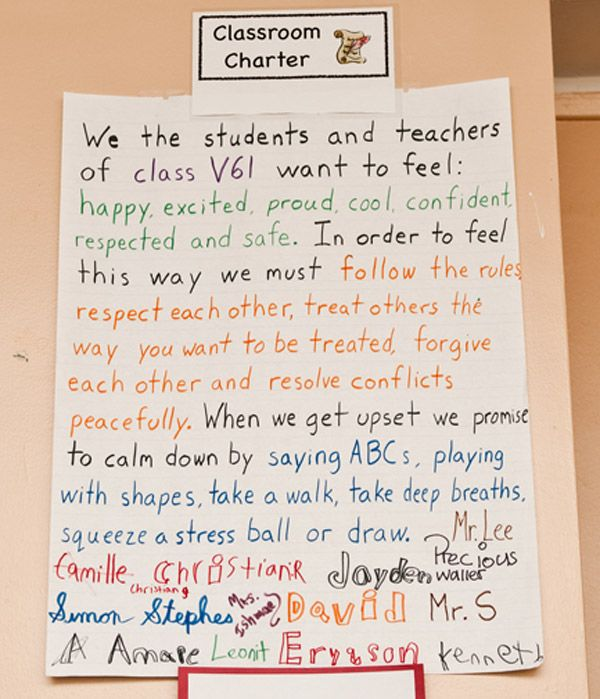 Classroom
Charter
We the students and teachers
of class V61 want to feel:
happy, excited, proud, cool, confident,
respected and safe. In order to feel
this way we must follow the rules,
respect each other, treat others the
way you want to be treated, forgive
each other and resolve conflicts
peacefully. When we get upset we promise
to calm down by saying ABCs, playing
with shapes, take a walk, take deep breaths,
squeeze a stress ball or draw. Mr. Lee
Camille Christian R Jayden Precious Waller
Christian g
Simon Stephes Mrs. David Mr. S
A Amare Leonit Eryason Kenneth